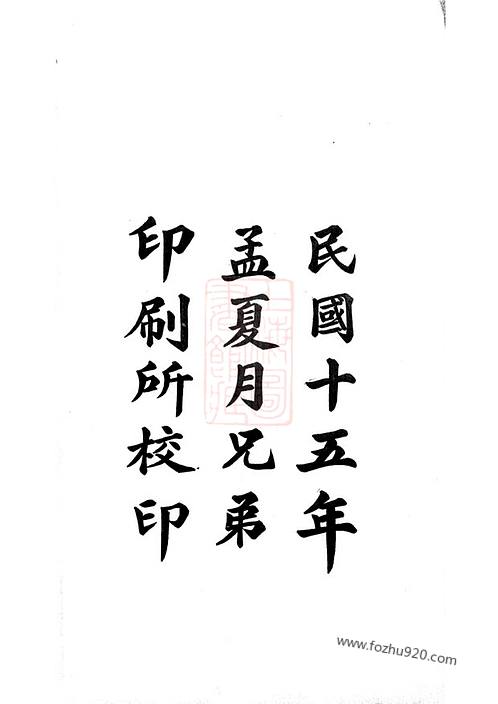 民國十五年
孟夏月兄弟
印刷所校印
www.fozhu920.com